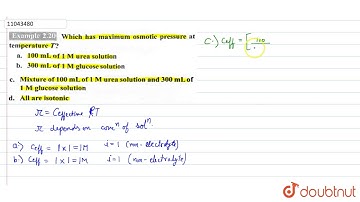 11043480
Example 2.20 Which has maximum osmotic pressure at
temperature T?
a. 100 mL of 1 M urea solution
b. 300 mL of 1 M glucose solution
c. Mixture of 100 mL of 1 M urea solution and 300 mL of
1 M glucose solution
d. All are isotonic
π = Ceffective RT
π depends on concⁿ of solⁿ
a) Ceff = 1 x 1 = 1M i = 1 (non-electrolyte)
b) Ceff = 1 x 1 = 1M i = 1 (non-electrolyte)
C.) Ceff = [100
doubtnut